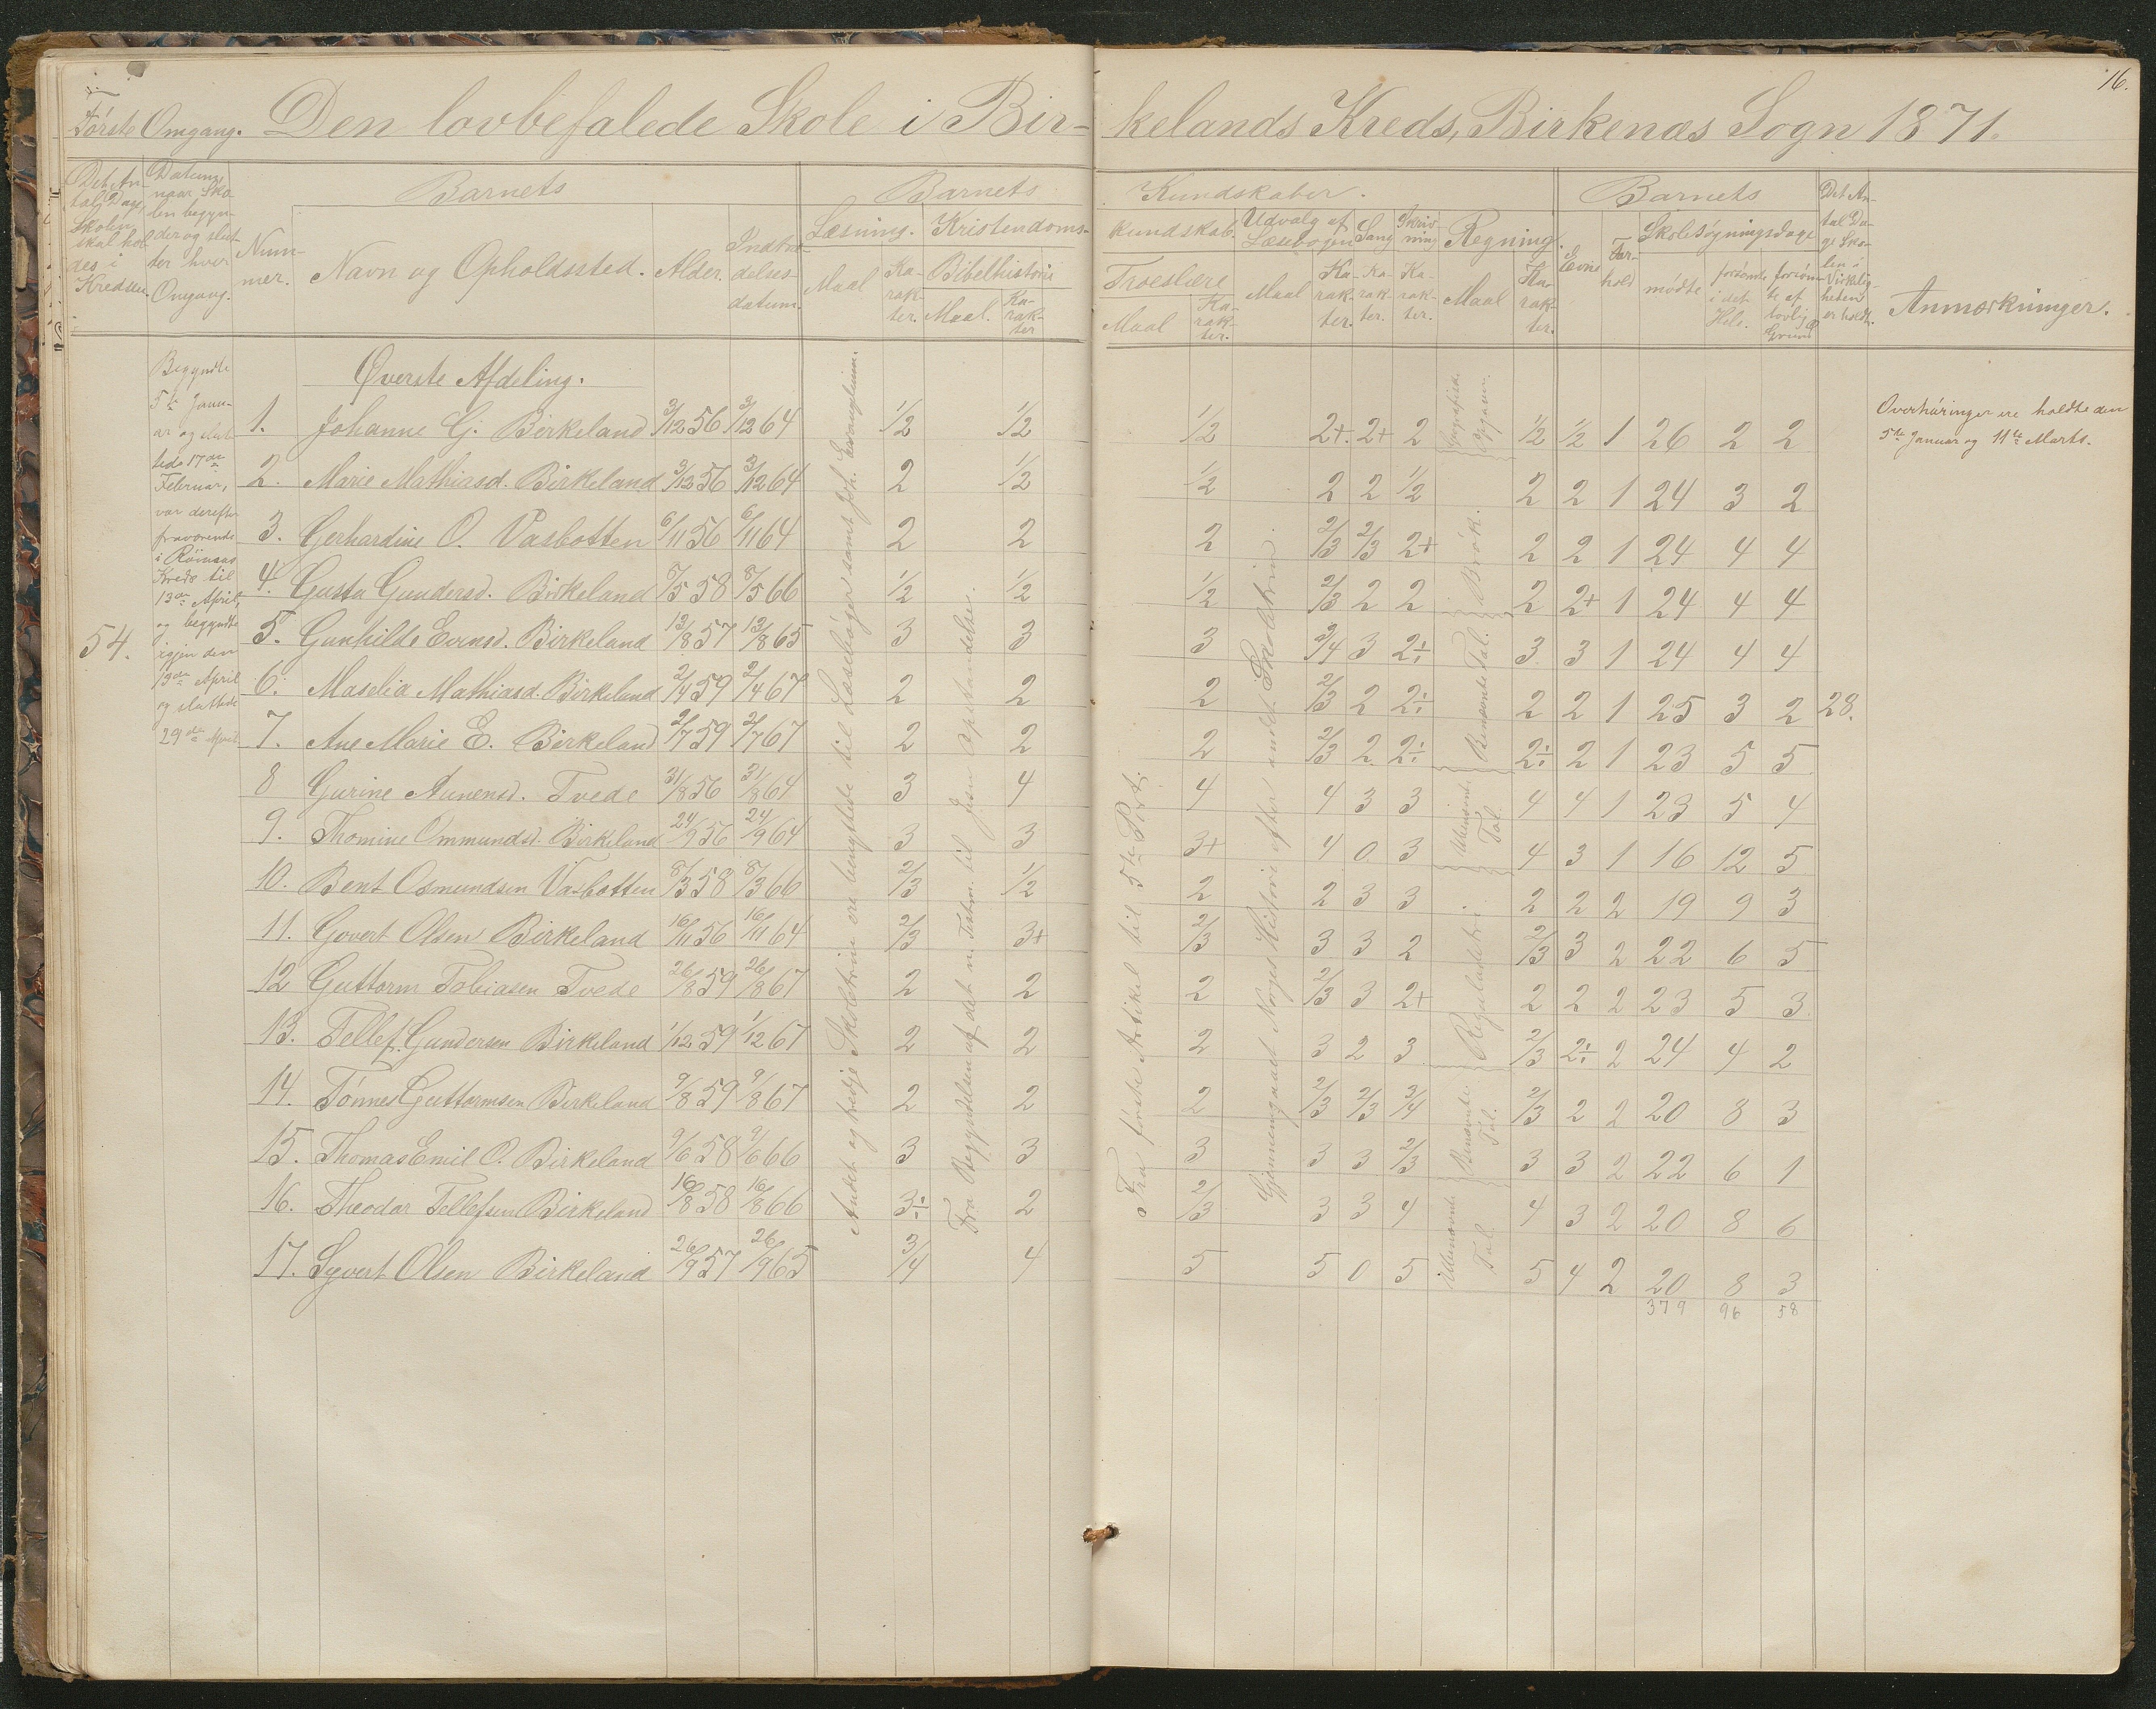 16.
Første Omgang. Den lovbefalede Skole i Bir- kelands Kreds, Birkenæs Sogn 1871.
Det An-
tal Dage,
Skolen
skal hol
des i
Kredsen.
Datum,
naar Sko
len begyn-
der og slut-
ter hver
Omgang.
Num-
mer.
Barnets
Navn og Opholdssted. Alder. Indtræ-
delses-
datum.
Barnets Kundskaber.
Læsning. Kristendoms- kundskab. Udvalg af
Læsebogen Sang Skriv-
ning Regning.
Maal Ka-
rak-
ter. Bibelhistorie Troeslære
Maal. Ka-
rak-
ter Maal Ka-
rak-
ter. Maal Ka-
rak-
ter. Ka-
rak-
ter. Ka-
rak-
ter. Maal Ka-
rak-
ter.
Barnets
Evne For-
hold Skolesøgningsdage
mødte forsømte
i det
Hele. forsøm-
te af
lovlig
Grund
Det An-
tal Da-
ge Sko-
len i
Virkelig-
heden
er holdt.
Anmærkninger.
54.
Begyndte
5te Janu-
ar og slut
tede 17de
Februar,
var derefter
fraværende
i
Kreds til
13de April,
og begyndte
igjen den
13de April
og sluttede
29de April
Øverste Afdeling.
Andet og tredje Skoletrin ere benyttede til Læsebøger samt Joh. Evangelium.
Fra Begyndelsen af det n. Testm. til Jesu Opstandelse.
Fra første Artikel til 5te Part.
Gjennemgaaet Norges Historie efter andet Skoletrin.
Brøk.
Benævnte Tal.
Ubenævnte Tal.
Reguladetri.
Benævnte Tal.
Ubenævnte Tal.
1. Johanne G. Birkeland 3/12 56 3/12 64 1/2 1/2 1/2 2+. 2+ 2 1/2 1/2 1 26 2 2
2. Marie Mathiasd. Birkeland 3/12 56 3/12 64 2 1/2 1/2 2 2 1/2 2 2 1 24 3 2
3. Gerhardine O. Vasbotten 6/11 56 6/11 64 2 2 2 2/3 2/3 2+ 2 2 1 24 4 4
4. Gusta Gundersd. Birkeland 8/5 58 8/5 66 1/2 1/2 1/2 2/3 2 2 2 2+ 1 24 4 4
5. Gunhilde Evensd. Birkeland 13/8 57 13/8 65 3 3 3 3/4 3 2÷ 3 3 1 24 4 4
6. Maselia Mathiasd. Birkeland 2/4 59 2/4 67 2 2 2 2/3 2 2÷ 2 2 1 25 3 2 28.
7. Ane Marie E. Birkeland 2/7 59 2/7 67 2 2 2 2/3 2 2÷ 2÷ 2 1 23 5 5
8 Gurine Aanensd. Tvede 31/8 56 31/8 64 3 4 4 4 3 3 4 4 1 23 5 4
9. Thomine Ommundsd. Birkeland 24/9 56 24/9 64 3 3 3+ 4 0 3 4 3 1 16 12 5
10. Bent Osmundsen Vasbotten 8/3 58 8/3 66 2/3 1/2 2 2 3 3 2 2 2 19 9 3
11. Govert Olsen Birkeland 16/11 56 16/11 64 2/3 3+ 2/3 3 3 2 2/3 3 2 22 6 5
12 Guttorm Tobiasen Tvede 26/8 59 26/8 67 2 2 2 2/3 3 2+ 2 2 2 23 5 3
13. Tellef Gundersen Birkeland 1/12 59 1/12 67 2 2 2 3 2 3 2/3 2÷ 2 24 4 2
14. Tønnes Guttormsen Birkeland 9/8 59 9/8 67 2 2 2 2/3 2/3 3/4 2/3 2 2 20 8 3
15. Thomas Emil O. Birkeland 9/6 58 9/6 66 3 3 3 3 3 2/3 3 3 2 22 6 1
16. Theodor Tellefsen Birkeland 16/8 58 16/8 66 3÷ 2 2/3 3 3 4 4 3 2 20 8 6
17. Syvert Olsen Birkeland 26/9 57 26/9 65 3/4 4 5 5 0 5 5 4 2 20 8 3
379 96 58
Overhøringer ere holdte den
5te Januar og 11te Marts.